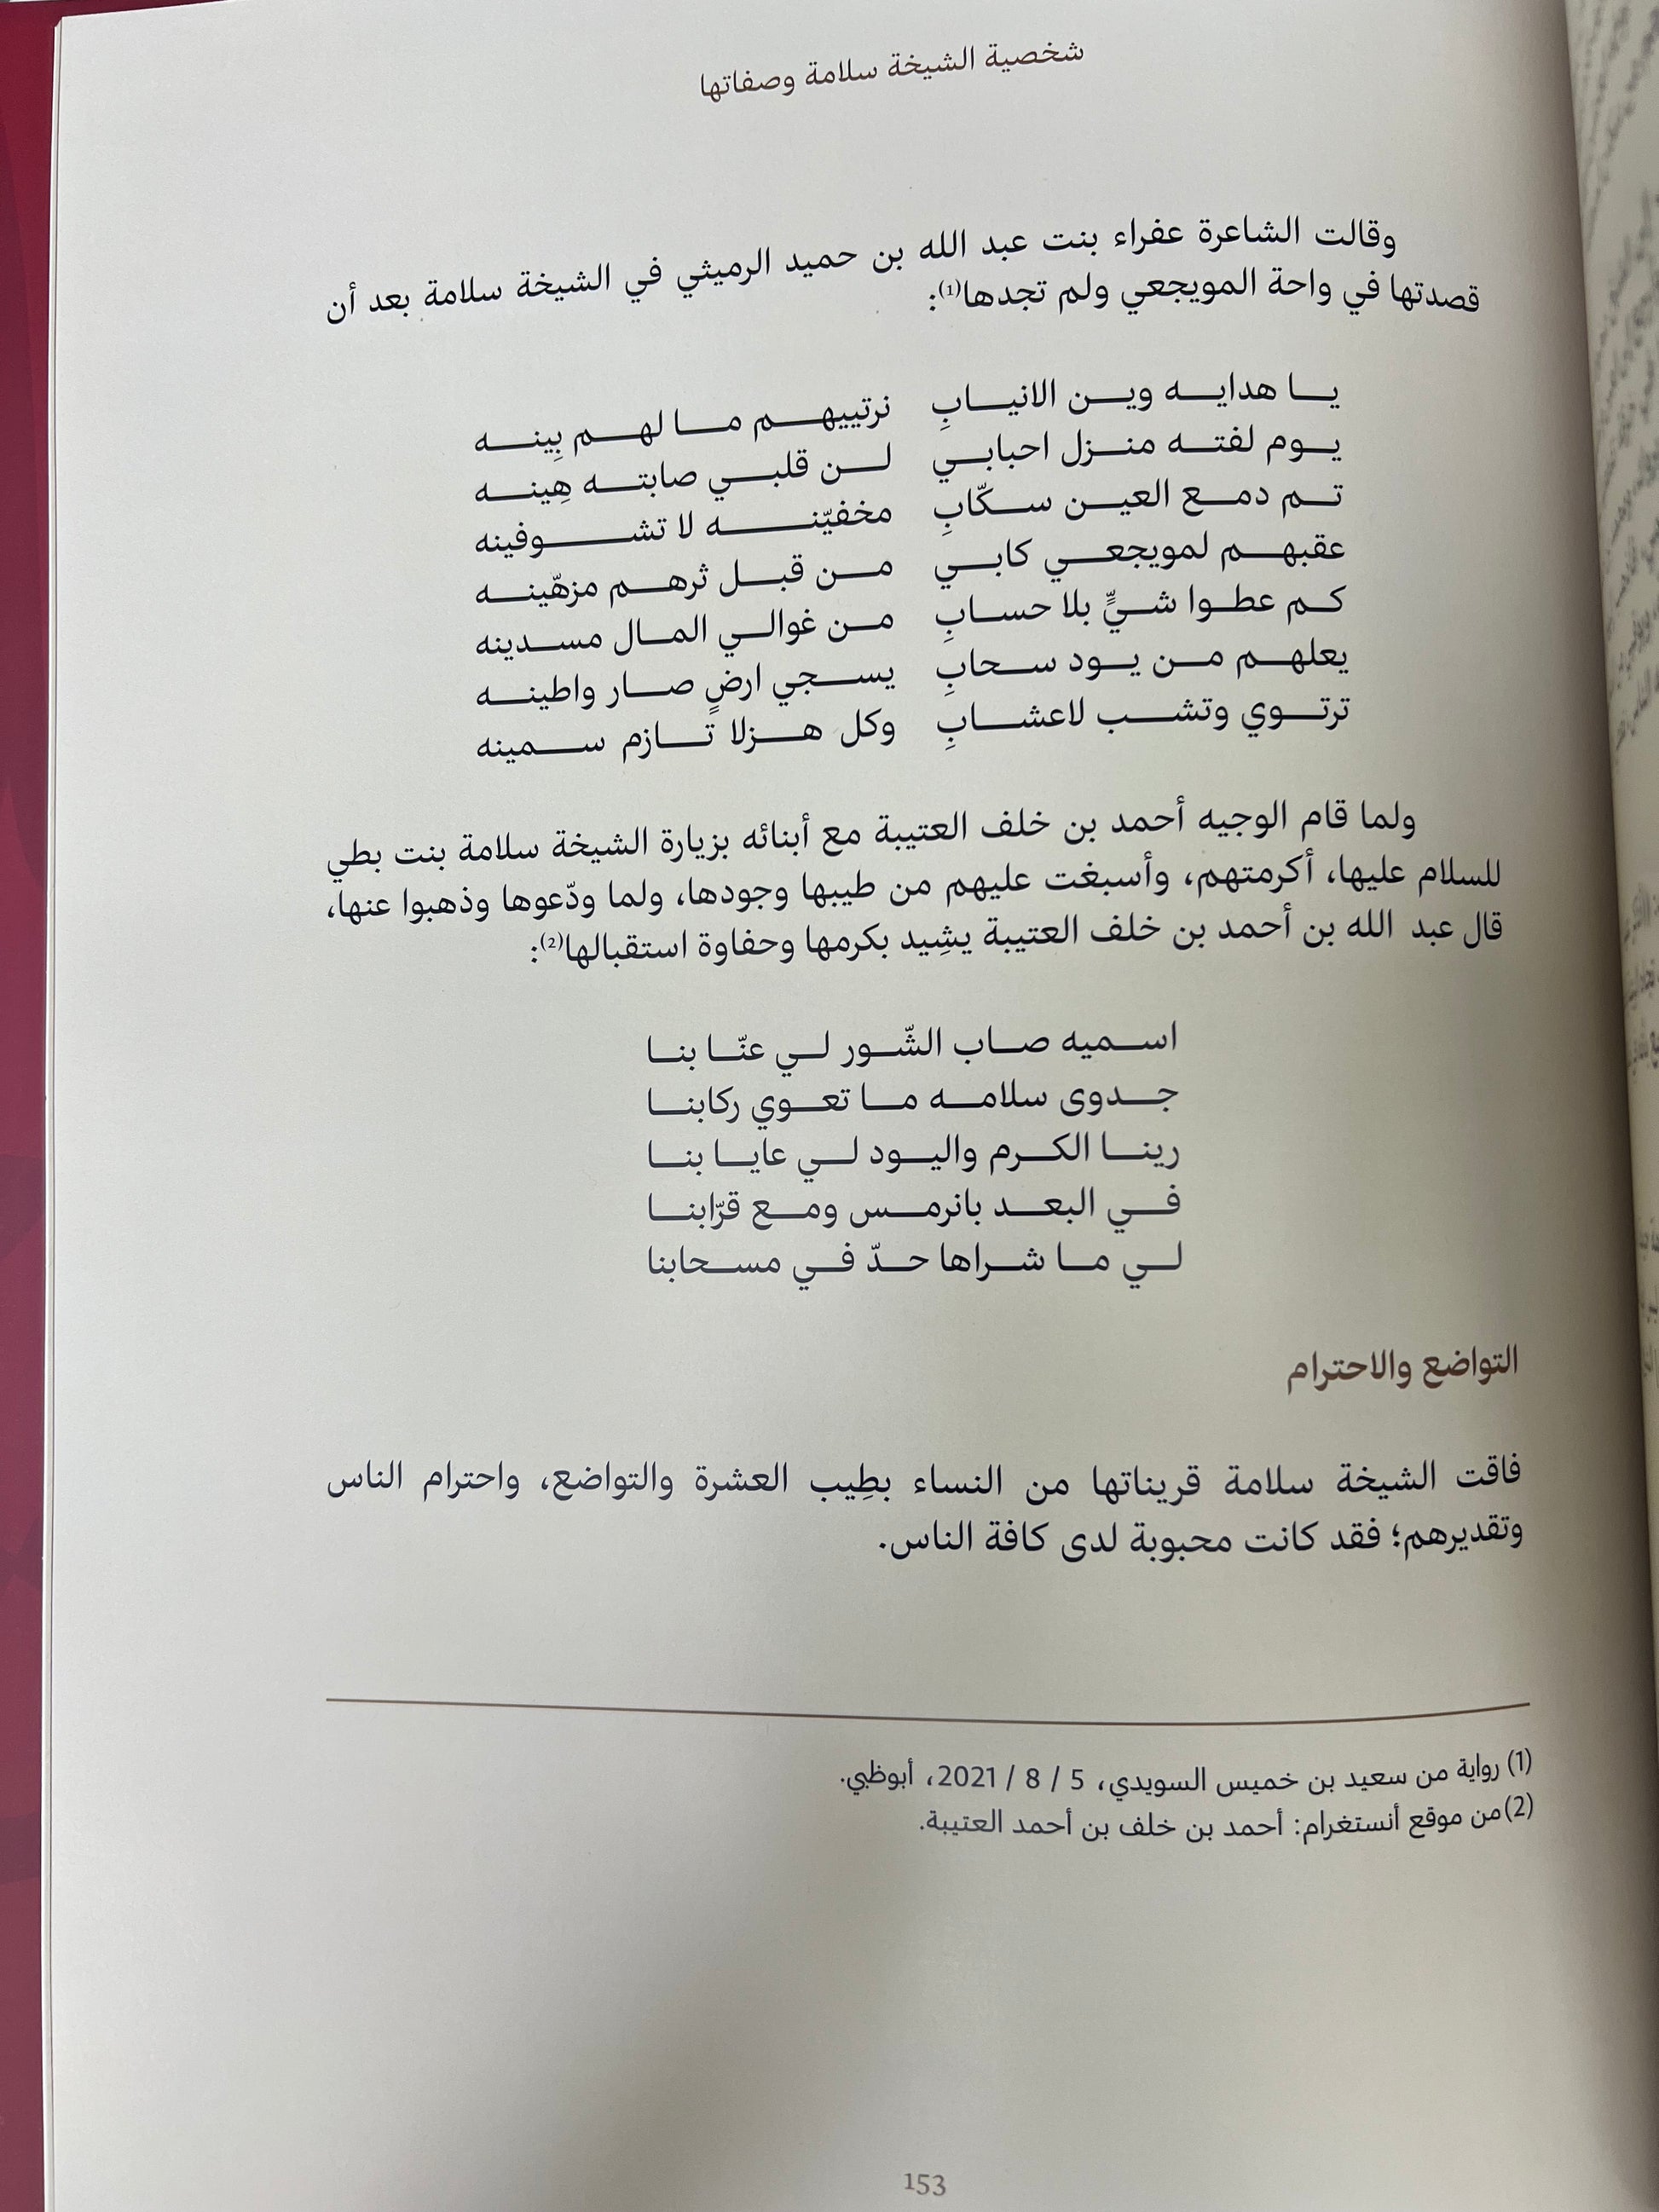 شخصية الشيخة سلامة وصفاتها
وقالت الشاعرة عفراء بنت عبد الله بن حميد الرميثي في الشيخة سلامة بعد أن
قصدتها في واحة المويجعي ولم تجدها(1):
يا هدايه وين الانيابِ نرتييهم ما لهم بِينه
يوم لفته منزل احبابي لن قلبي صابته هِينه
تم دمع العين سكّابِ مخفيّنه لا تشوفينه
عقبهم لمويجعي كابي من قبل ثرهم مزهّينه
كم عطوا شيٍّ بلا حسابِ من غوالي المال مسدينه
يعلهم من يود سحابِ يسجي ارضٍ صار واطينه
ترتوي وتشب لاعشابِ وكل هزلا تازم سمينه
ولما قام الوجيه أحمد بن خلف العتيبة مع أبنائه بزيارة الشيخة سلامة بنت بطي
للسلام عليها، أكرمتهم، وأسبغت عليهم من طيبها وجودها، ولما ودّعوها وذهبوا عنها،
قال عبد الله بن أحمد بن خلف العتيبة يشِيد بكرمها وحفاوة استقبالها(2):
اسميه صاب الشّور لي عنّا بنا
جدوى سلامه ما تعوي ركابنا
رينا الكرم واليود لي عايا بنا
في البعد بانرمس ومع قرّابنا
لي ما شراها حدّ في مسحابنا
التواضع والاحترام
فاقت الشيخة سلامة قريناتها من النساء بطِيب العشرة والتواضع، واحترام الناس
وتقديرهم؛ فقد كانت محبوبة لدى كافة الناس.
(1) رواية من سعيد بن خميس السويدي، 5 / 8 / 2021، أبوظبي.
(2) من موقع أنستغرام: أحمد بن خلف بن أحمد العتيبة.
153